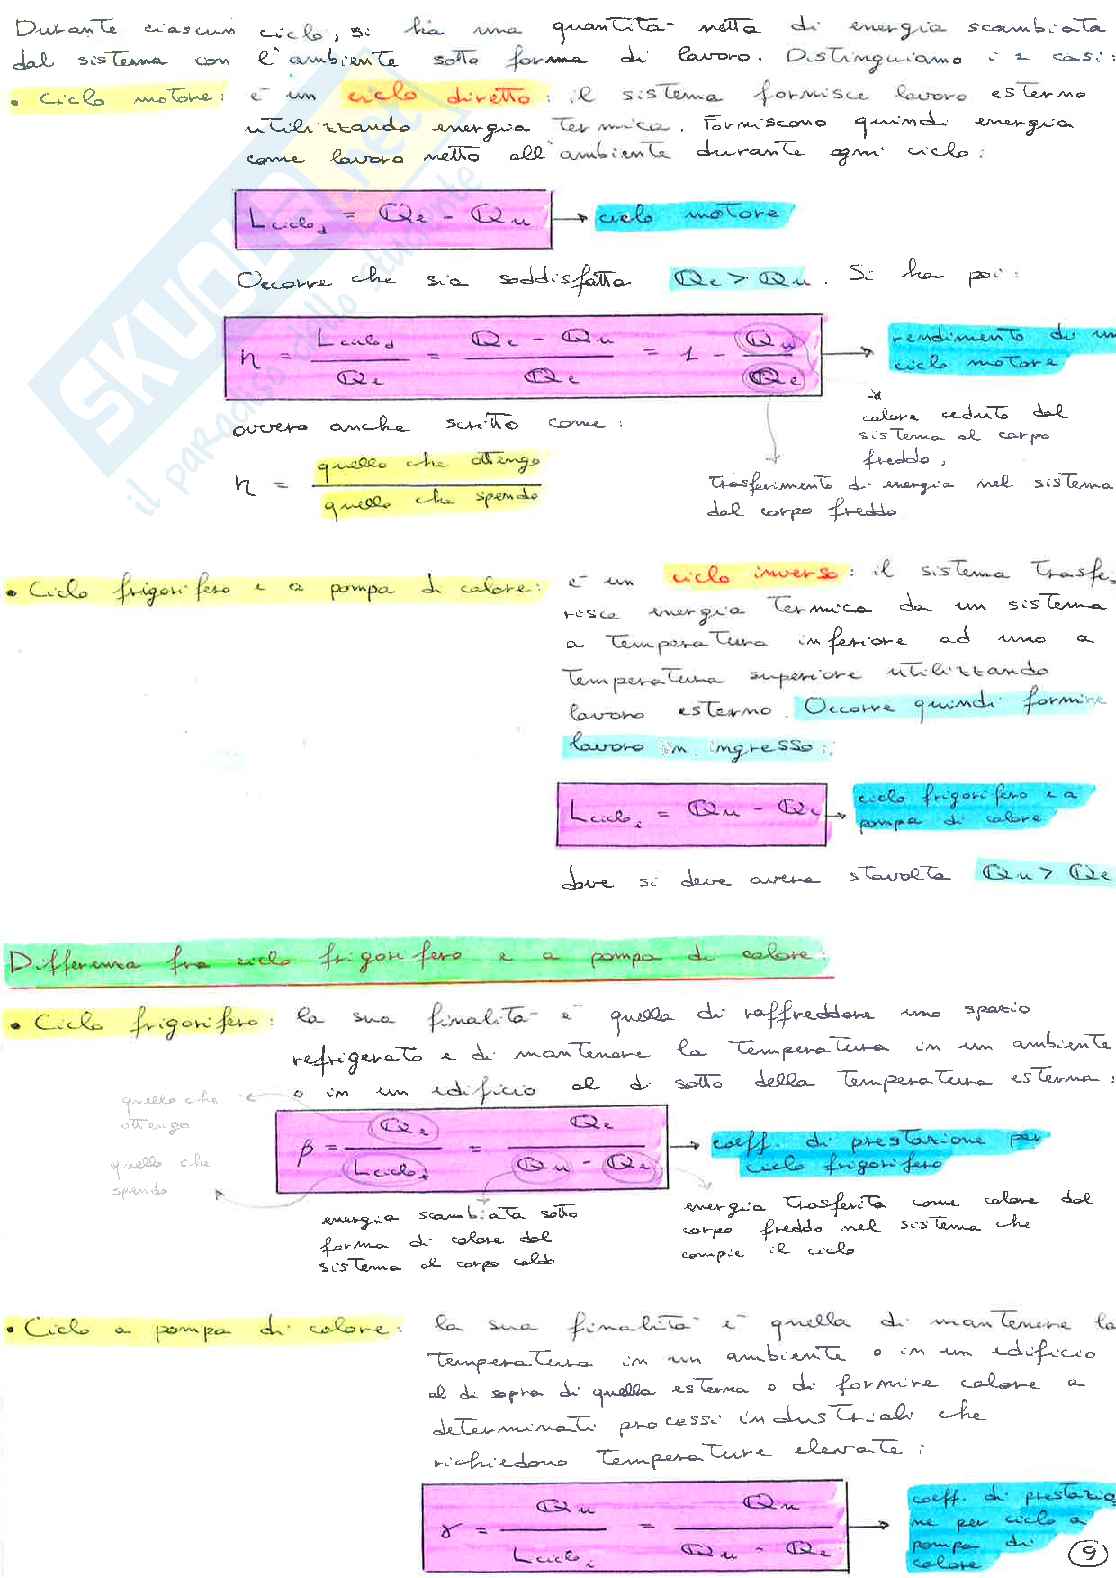 Durante ciascun ciclo, si ha una quantità netta di energia scambiata
dal sistema con l'ambiente sotto forma di lavoro. Distinguiamo i 2 casi:
• Ciclo motore: è un ciclo diretto: il sistema fornisce lavoro esterno
utilizzando energia termica. Forniscono quindi energia
come lavoro netto all'ambiente durante ogni ciclo:
Lciclo_d = Qe - Qu → ciclo motore
Occorre che sia soddisfatta Qe > Qu. Si ha poi:
η = Lciclo_d / Qe = (Qe - Qu) / Qe = 1 - Qu / Qe → rendimento di un
ciclo motore
ovvero anche scritto come:
calore ceduto dal
sistema al corpo
freddo,
η = quello che ottengo / quello che spendo
trasferimento di energia nel sistema
dal corpo freddo
• Ciclo frigorifero e a pompa di calore: è un ciclo inverso: il sistema trasfe,
risce energia termica da un sistema
a temperatura inferiore ad uno a
temperatura superiore utilizzando
lavoro esterno. Occorre quindi fornire
lavoro in ingresso:
Lciclo_i = Qu - Qe → ciclo frigorifero e a
pompa di calore
dove si deve avere stavolta Qu > Qe
Differenza fra ciclo frigorifero e a pompa di calore:
• Ciclo frigorifero: la sua finalità è quella di raffreddare uno spazio
refrigerato e di mantenere la temperatura in un ambiente
o in un edificio al di sotto della temperatura esterna:
quello che
ottengo
β = Qe / Lciclo_i = Qe / (Qu - Qe) → coeff. di prestazione per
ciclo frigorifero
quello che
spendo
energia scambiata sotto
forma di calore dal
sistema al corpo caldo
energia trasferita come calore dal
corpo freddo nel sistema che
compie il ciclo
• Ciclo a pompa di calore: la sua finalità è quella di mantenere la
temperatura in un ambiente o in un edificio
al di sopra di quella esterna o di fornire calore a
determinati processi industriali che
richiedono temperature elevate:
γ = Qu / Lciclo_i = Qu / (Qu - Qe) → coeff. di prestazio
ne per ciclo a
pompa di
calore
9
SKUOLA.net
il paradiso dello studente